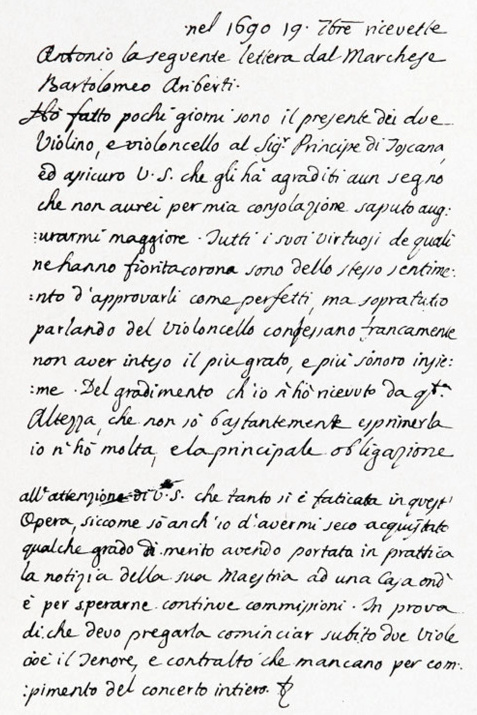 nel 1690 19. 7bre ricevette
Antonio la seguente lettera dal Marchese
Bartolomeo Ariberti.
Hò fatto pochi giorni sono il presente dei due
Violino, e violoncello al Sig.r Principe di Toscana,
ed assicuro V. S. che gli hà agraditi a un segno
che non aurei per mia consolazione saputo aug:
:urarmi maggiore. Tutti i suoi virtuosi de quali
ne hanno fiorita corona sono dello stesso sentime:
:nto d'approvarli come perfetti, ma sopratutto
parlando del violoncello confessano francamente
non aver inteso il piu grato, e più sonoro insie:
:me. Del gradimento ch'io n'hò ricevuto da qt.
Altezza, che non sò bastantemente esprimerla
io n'hò molta, e la principale obligazione
all'attenzione di V. S. che tanto si è faticata in quest'
Opera, siccome sò anch'io d'avermi seco acquistato
qualche grado di merito avendo portata in prattica
la notizia della sua Maestria ad una Casa ond'
è per sperarne continue commissioni. In prova
di che devo pregarla cominciar subito due Viole
cioè il Tenore, e contralto che mancano per com:
:pimento del concerto intiero.